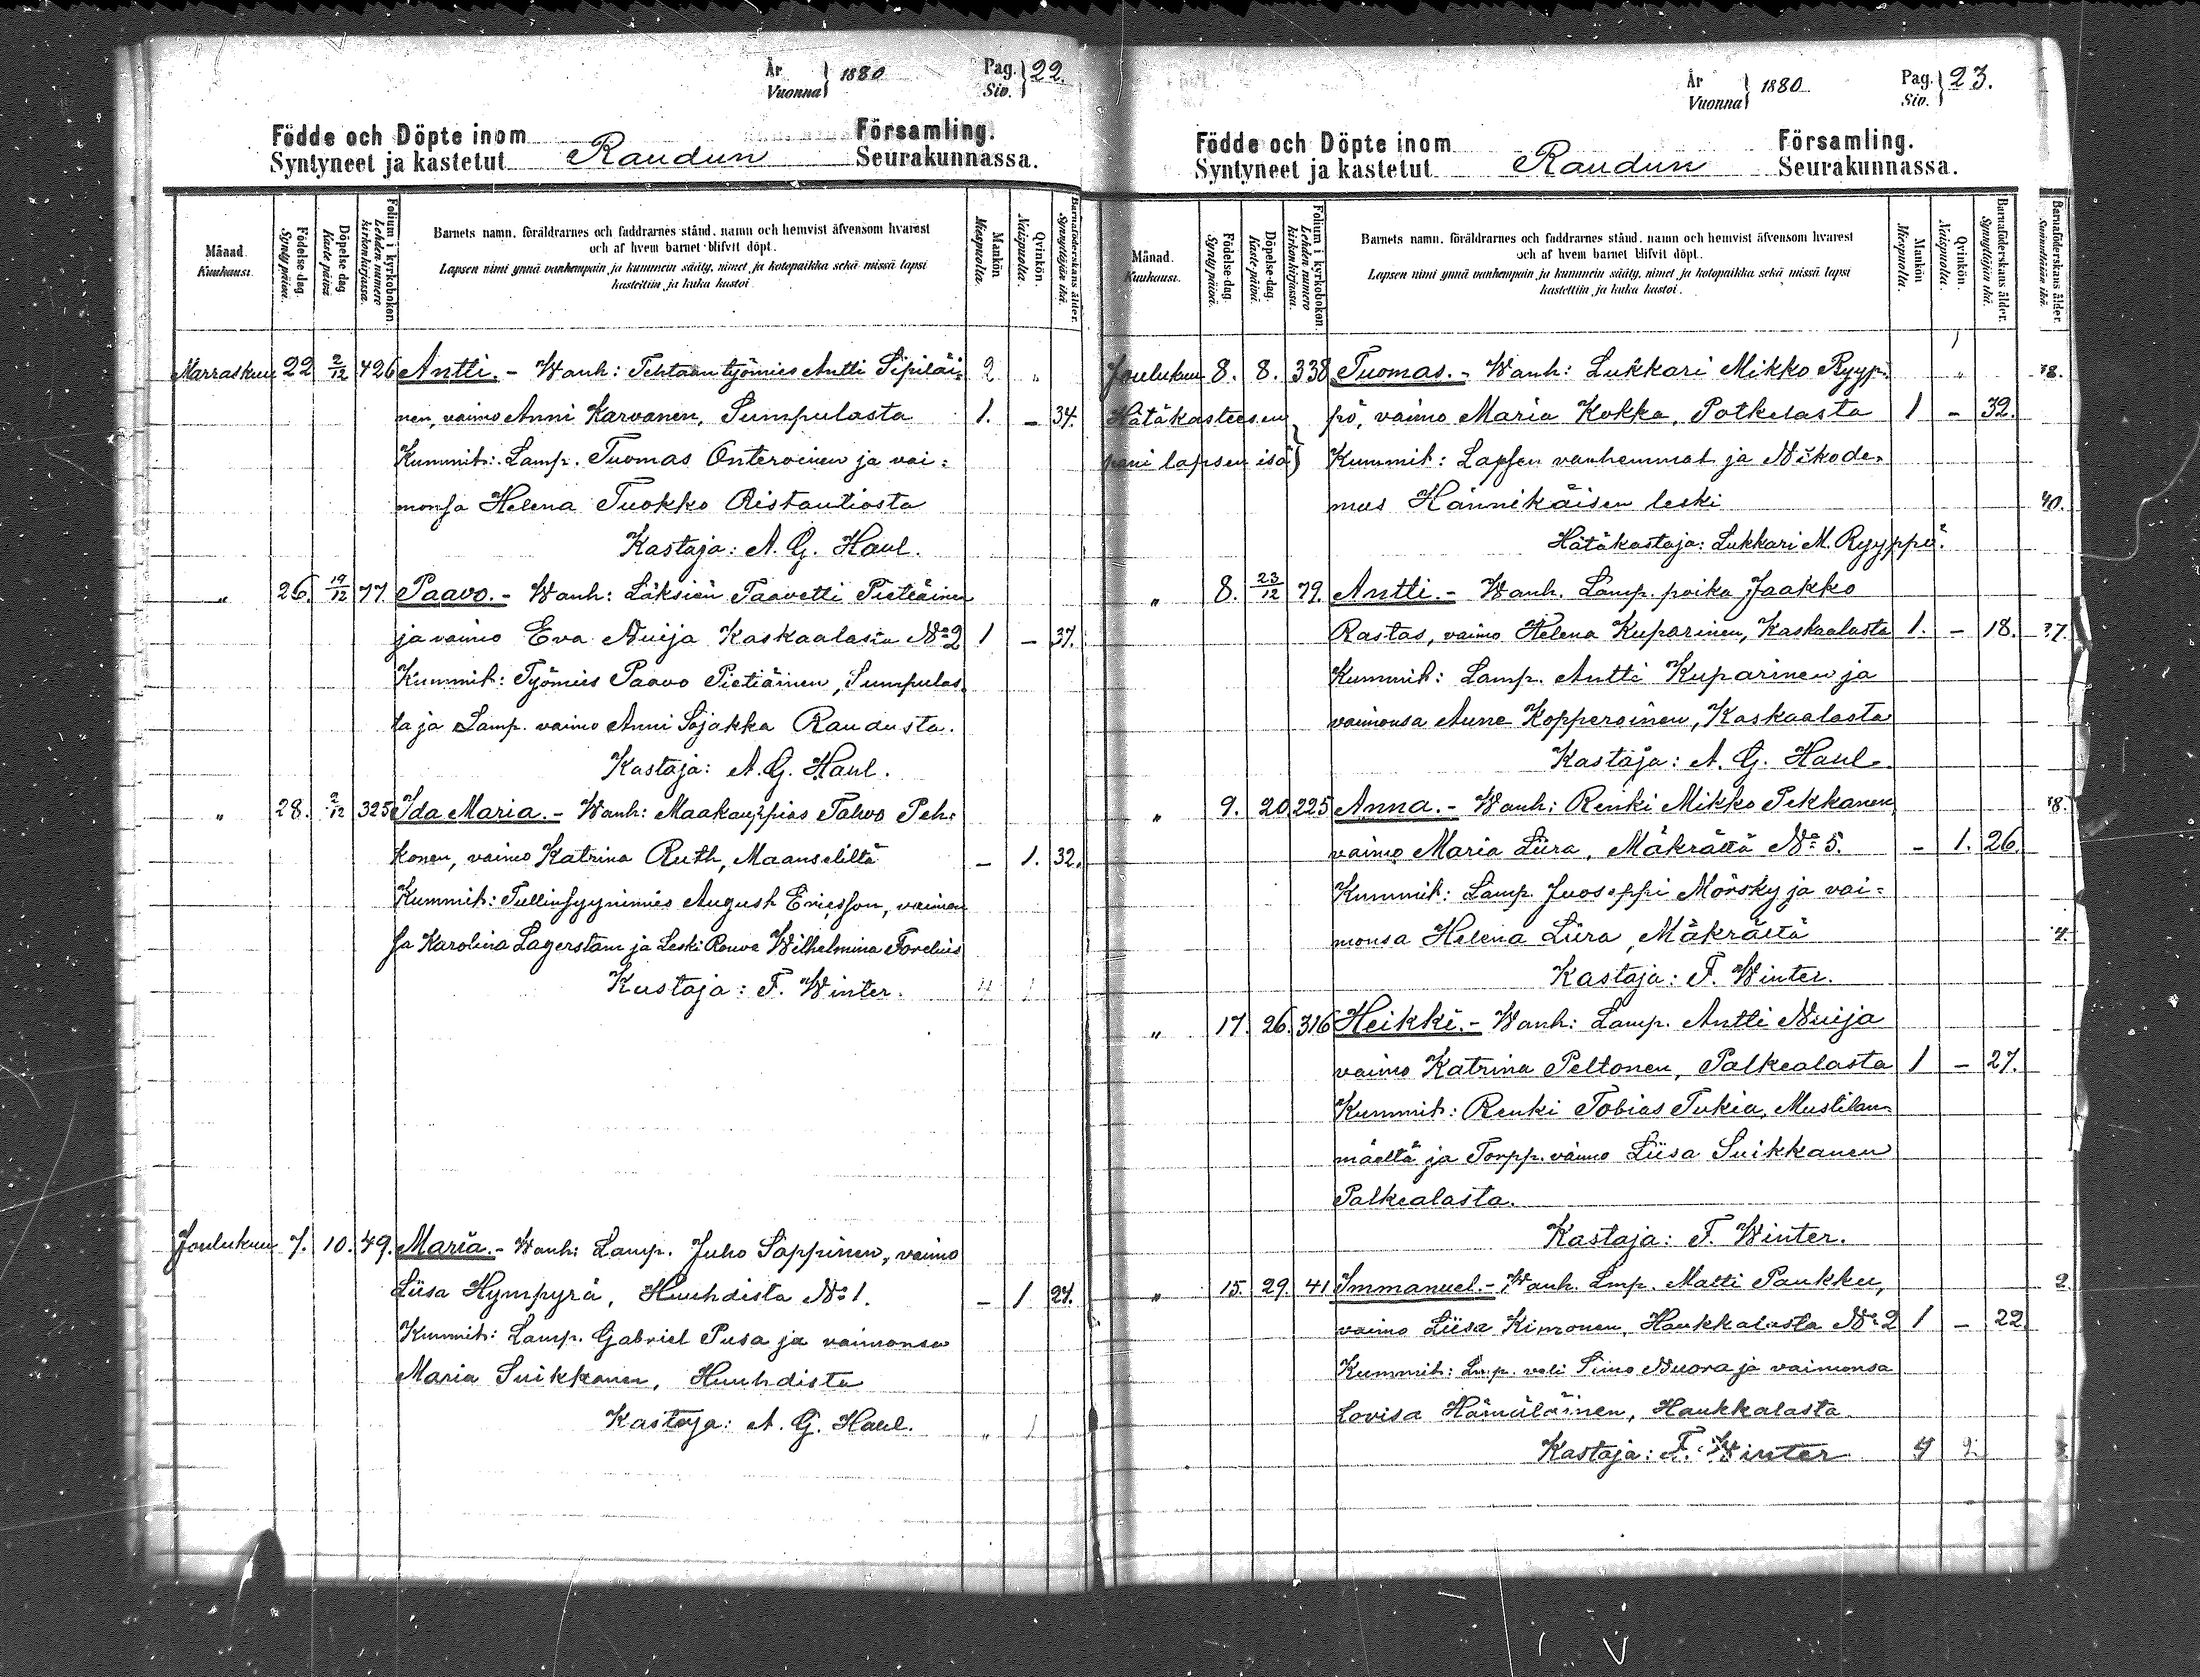 År Vuonna } 1880 Pag. Siv. } 22.
Födde och Döpte inom Församling.
Syntyneet ja kastetut Raudun Seurakunnassa.
Månad. Kuukausi.
Födelse-dag. Synty päivä.
Döpelse-dag. Kaste päivä.
Folium i kyrkoboken. Lehden numero kirkonkirjassa.
Barnets namn, föräldrarnes och faddrarnes stånd, namn och hemvist äfvensom hvarest
och af hvem barnet blifvit döpt.
Lapsen nimi ynnä vanhempain ja kummein sääty, nimet ja kotopaikka sekä missä lapsi
kastettiin ja kuka kastoi.
Mankön. Miespuolia.
Qvinkön. Naispuolia.
Barnaföderskans ålder. Synnyttäjän ikä.
Marraskuu 22 2/12 426 Antti. - Wanh: Tehtaan työmies Antti Sipiläi= 2 "
nen, vaimo Anni Karvanen, Sumpulasta 1. - 34.
Kummit: Lamp. Tuomas Onteroinen ja vai=
monsa Helena Tuokko Ristautiosta
Kastaja: A. G. Haul.
" 26. 19/12 77 Paavo. - Wanh: Läksiän Taavetti Pietiäinen
ja vaimo Eva Nuija Kaskaalasta No 2 1 - 37.
Kummit: Työmies Paavo Pietiäinen, Sumpulas
ta ja Lamp. vaimo Anni Sojakka Raudusta.
Kastaja: A. G. Haul.
" 28. 2/12 325 Ida Maria. - Wanh: Maakauppias Tahvo Peh=
konen, vaimo Katrina Ruth, Maanseliltä - 1. 32.
Kummit: Tullinsyynimies August Ericsson, vaimon
sa Karolina Lagerstam ja Leski Rouva Wilhelmina Forelius
Kastaja: F. Winter. 4 1
Joulukuu 7. 10. 49. Maria. - Wanh: Lamp. Juho Soppinen, vaimo
Liisa Hympyrä, Huuhdista No 1. - 1 24.
Kummit: Lamp. Gabriel Pusa ja vaimonsa
Maria Suikkanen, Huuhdista
Kastaja: A. G. Haul. " 1
År Vuonna } 1880 Pag. Siv. } 23.
Födde och Döpte inom Församling.
Syntyneet ja kastetut Raudun Seurakunnassa.
Månad. Kuukausi.
Födelse-dag. Synty päivä.
Döpelse-dag. Kaste päivä.
Folium i kyrkoboken. Lehden numero kirkonkirjassa.
Barnets namn, föräldrarnes och faddrarnes stånd, namn och hemvist äfvensom hvarest
och af hvem barnet blifvit döpt.
Lapsen nimi ynnä vanhempain ja kummein sääty, nimet ja kotopaikka sekä missä lapsi
kastettiin ja kuka kastoi.
Mankön. Miespuolia.
Qvinkön. Naispuolia.
Barnaföderskans ålder. Synnyttäjän ikä.
Barnaföderskans ålder.
Joulukuu 8. 8. 338 Tuomas. - Wanh: Lukkari Mikko Ryyp= " 18.
Hätäkasteesen pö, vaimo Maria Kokka, Potkelasta 1 - 32.
pani lapsen isä } Kummit: Lapsen vanhemmat ja Nikode=
mus Hännikäisen leski 40.
Hätäkastaja: Lukkari M. Ryyppö.
" 8. 23/12 79. Antti. - Wanh. Lamp. poika Jaakko
Rastas, vaimo Helena Kuparinen, Kaskaalasta 1. - 18. 37.
Kummit: Lamp. Antti Kuparinen ja
vaimonsa Anne Kopperoinen, Kaskaalasta
Kastaja: A. G. Haul.
" 9. 20 225 Anna. - Wanh: Renki Mikko Pekkanen, 18.
vaimo Maria Liira, Mäkrältä No 5. - 1. 26.
Kummit: Lamp. Juoseppi Mörsky ja vai=
monsa Helena Liira, Mäkrältä 4.
Kastaja: F. Winter.
" 17. 26. 316 Heikki. - Wanh: Lamp. Antti Nuija
vaimo Katrina Peltonen, Palkealasta 1 - 27.
Kummit: Renki Tobias Tukia, Mustilan=
mäeltä ja Torpp. vaimo Liisa Suikkanen
Palkealasta.
Kastaja: F. Winter.
" 15. 29. 41 Immanuel. - Wanh. Lmp. Matti Paukku, 2.
vaimo Liisa Kimonen, Haukkalasta No 2 1 - 22.
Kummit: Lmp. veli Simo Nuora ja vaimonsa
Lovisa Hämäläinen, Haukkalasta
Kastaja: F. Winter 4 2